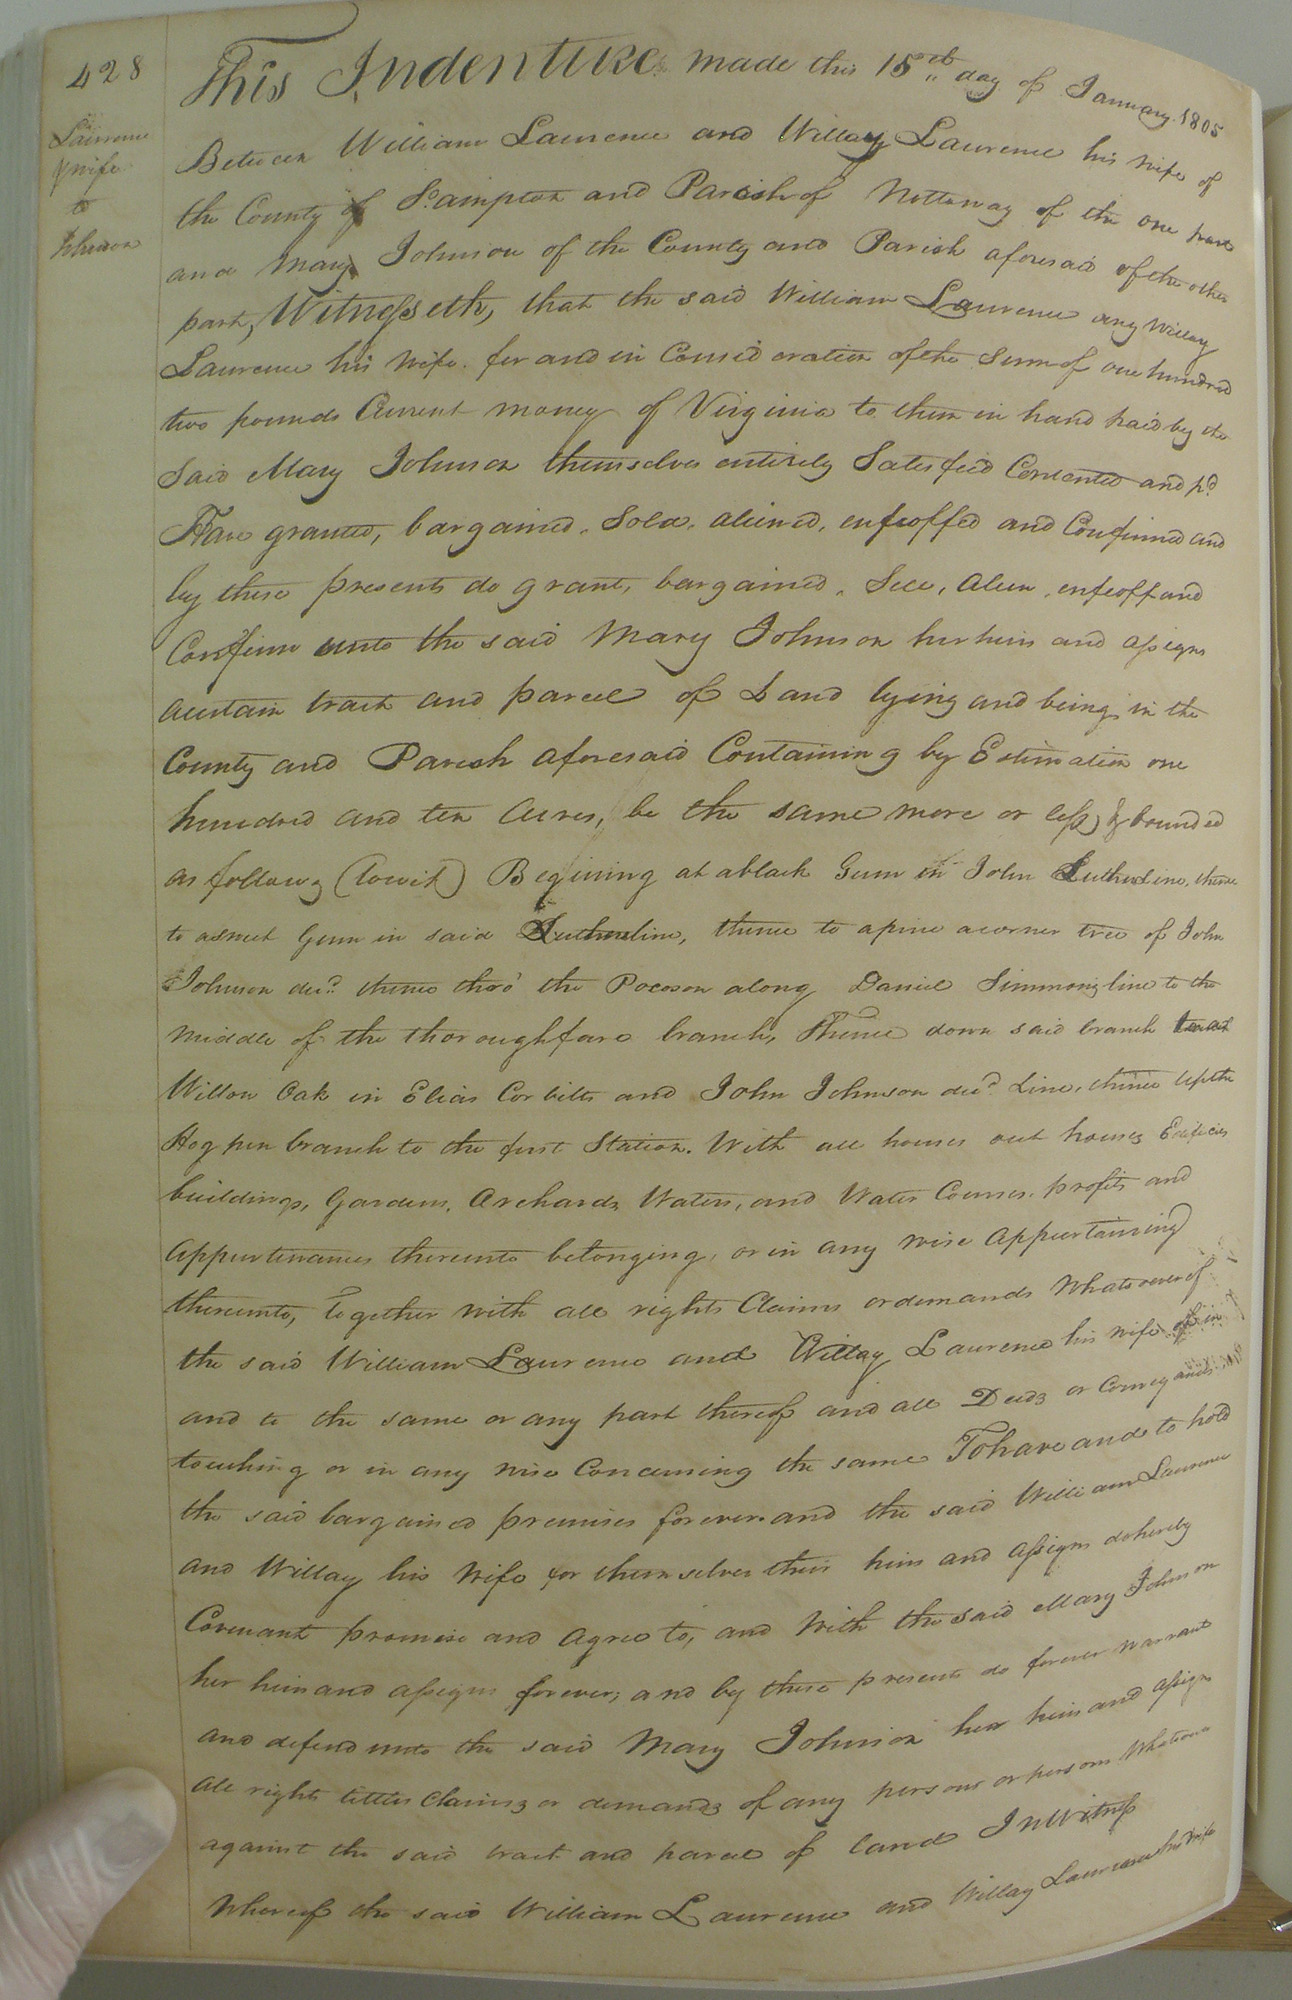 428
Laurence
& wife
to
Johnson
This Indenture made this 15th day of January 1805
Between William Laurence and Willay Laurence his wife of
the County of S.ampton and Parish of Nottoway of the one part
and Mary Johnson of the County and Parish aforesaid of the other
part, Witnesseth, that the said William Laurence any Willay
Laurence his wife for and in Consideration of the Sum of one hundred
two pounds Current money of Virginia to them in hand paid by the
Said Mary Johnson themselves entirely Satisfied Contented and pd.
Have granted, bargained, Sold, aliened, enfeoffed and Confirmed and
by these presents do grant, bargained, Sell, Alien, enfeoff and
Confirm unto the said Mary Johnson her heirs and assigns
a certain tract and parcel of Land lying and being in the
County and Parish aforesaid Containing by Estimation one
hundred and ten Acres, be the same more or less, & bounded
as follows (towit) Begining at a black Gum in John Line, thence
to a sweet Gum in said line, thence to a pine a corner tree of John
Johnson decd. thence thro' the Pocoson along Daniel Simmons line to the
middle of the thoroughfare branch, Thence down said branch to a
Willow Oak in Elias Corbitts and John Johnson decd. Line, thence up the
Hog pen branch to the first Station. With all houses out houses Edifices
buildings, Gardens, Orchards, Waters, and Water Courses, profits and
Appurtenances thereunto belonging, or in any wise Appurtaining
thereunto, Together with all rights Claims or demands Whatsoever of
the said William Laurence and Willay Laurence his wife of in
and to the same or any part thereof and all Deeds or Conveyances
touching or in any wise Concerning the same To have and to hold
the said bargained premises forever and the said William Laurence
and Willay his Wife for themselves their heirs and Assigns do hereby
Covenant promise and Agree to, and With the said Mary Johnson
her heirs and assigns forever; and by these presents do forever warrant
and defend unto the said Mary Johnson her heirs and assigns
all rights tittles Claims or demands of any persons or persons Whatsoever
against the said tract and parcel of land In Witness
Whereof the said William Laurence and Willay Laurence his Wife